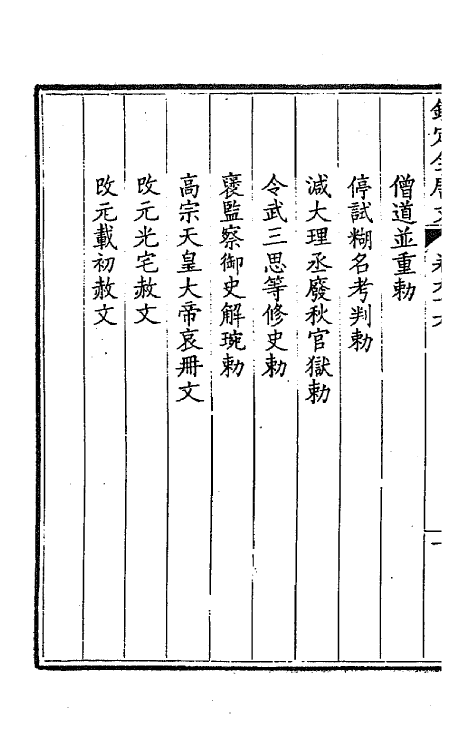 欽定全唐文 卷九十六 一
僧道並重勅
停試糊名考判勅
減大理丞廢秋官獄勅
令武三思等修史勅
襃監察御史解琬勅
高宗天皇大帝哀冊文
改元光宅赦文
改元載初赦文